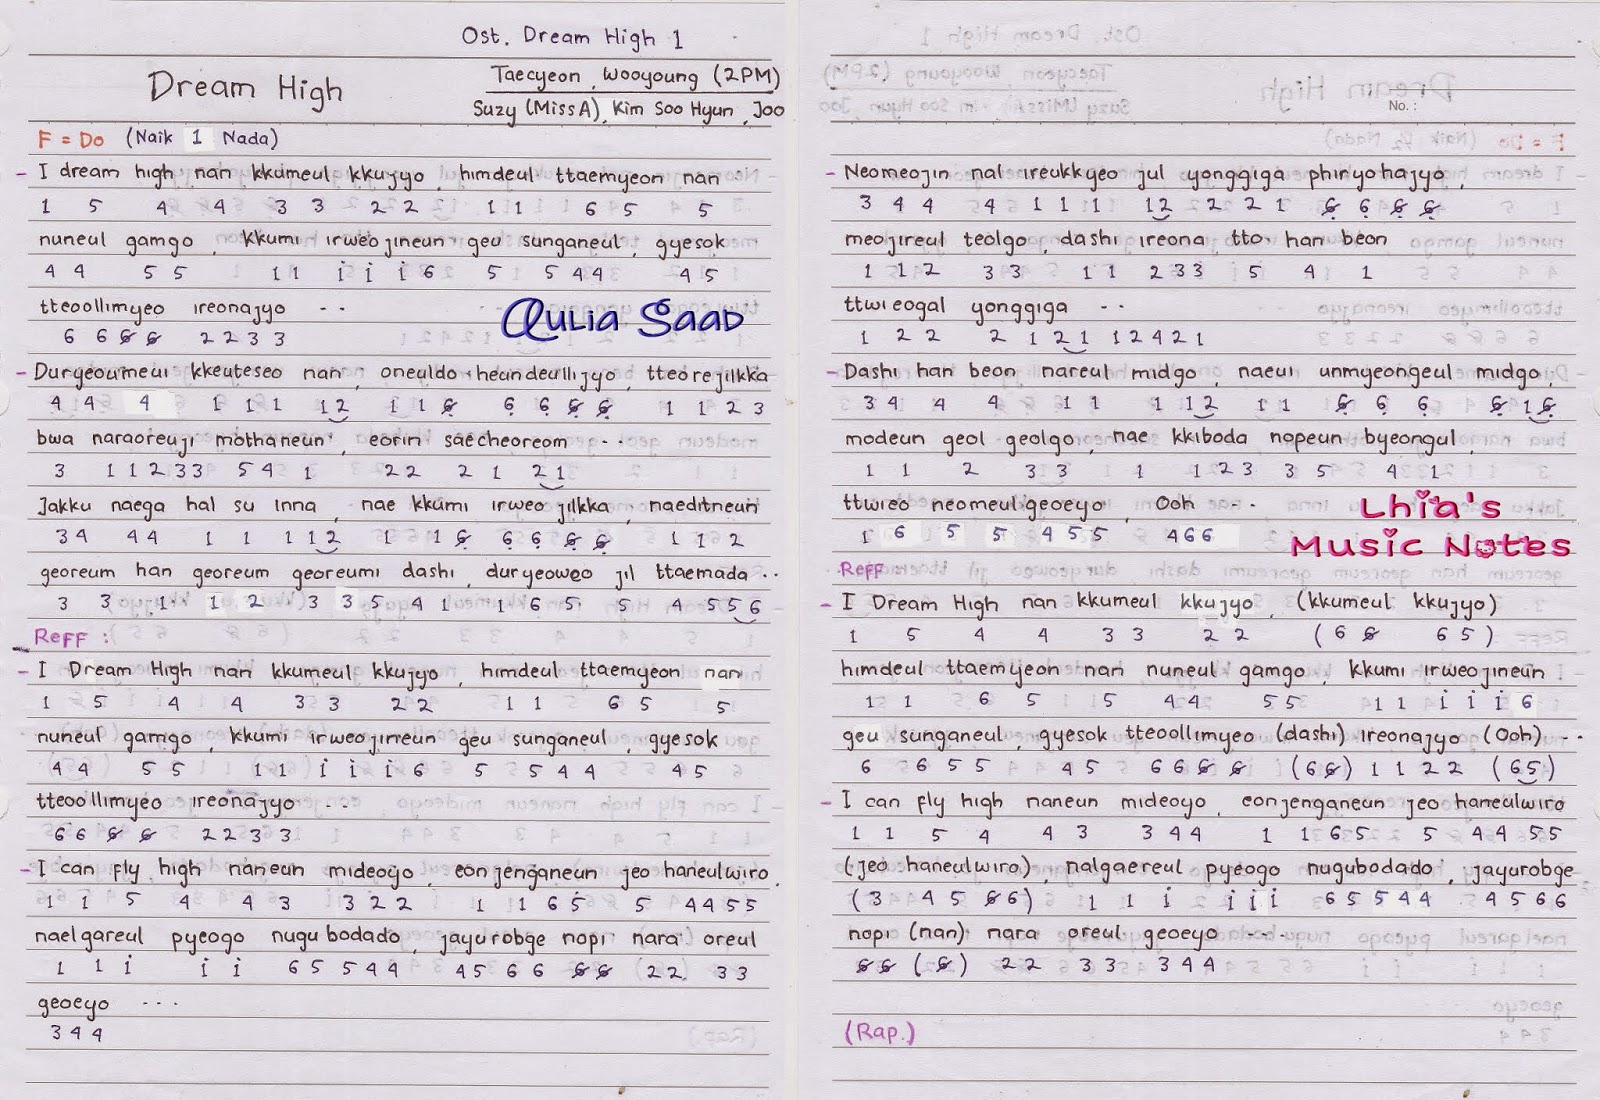 Ost. Dream High 1
Dream High
Taecyeon, Wooyoung (2PM)
Suzy (Miss A), Kim Soo Hyun, Joo
F = Do (Naik 1 Nada)
- I dream high nan kkumeul kkujyo, himdeul ttaemyeon nan
1 5 4 4 3 3 2 2 1 1 6 5 5
nuneul gamgo, kkumi irweojineun geu sunganeul, gyesok
4 4 5 5 1 1 i i i 6 5 5 4 4 4 5
tteoollimyeo ireonajyo ...
6 6 6 6 2 2 3 3
Qulia Saad
- Duryeoumeui kkeuteseo nan, oneuldo heundeullijyo, tteorejilkka
4 4 4 1 1 1 12 1 1 6 6 6 6 6 1 1 2 3
bwa naraoreuji mothaneun, eorin saecheoreom ...
3 1 1 2 3 3 5 4 1 2 2 2 1 2 1
Jakku naega hal su inna, nae kkumi irweo jilkka, naeditneun
3 4 4 4 1 1 1 1 2 1 1 6 6 6 6 6 1 1 2
georeum han georeum georeumi dashi, duryeoweo jil ttaemada ..
3 3 1 1 2 3 3 5 4 1 1 6 5 5 4 5 5 6
Reff :
- I Dream High nan kkumeul kkujyo, himdeul ttaemyeon nan
1 5 4 4 3 3 2 2 1 1 6 5 5
nuneul gamgo, kkumi irweojineun geu sunganeul, gyesok
4 4 5 5 1 1 i i i 6 5 5 4 4 4 5
tteoollimyeo ireonajyo ...
6 6 6 6 2 2 3 3
- I can fly high naneun mideoyo, eonjenganeun jeo haneulwiro,
1 1 5 4 4 3 3 2 2 1 1 6 5 5 4 4 5 5
naelgareul pyeogo nugubodado, jayurobge nopi nara oreul
1 1 i i i 6 5 5 4 4 4 5 6 6 6 6 2 2 3 3
geoeyo ...
3 4 4
No. :
- Neomeojin nal ireukkyeo jul yonggiga phiryohajyo,
3 4 4 4 1 1 1 12 2 2 2 1 6 6 6 6
meojireul teolgo, dashi ireona tto han beon
1 1 2 3 3 1 1 2 3 3 5 4 1
ttwieogal yonggiga ..
1 2 2 2 1 2 1 1 2 4 2 1
- Dashi han beon nareul midgo, naeui unmyeongeul midgo,
3 4 4 4 1 1 1 1 2 1 1 6 6 6 6 1 6
modeun geol geolgo, nae kkiboda nopeun byeongul,
1 1 2 3 3 1 1 2 3 3 5 4 1
ttwieo neomeulgeoeyo, Ooh ..
1 6 5 5 4 5 5 4 6 6
Lhia's
Music Notes
Reff
- I Dream High nan kkumeul kkujyo, (kkumeul kkujyo)
1 5 4 4 3 3 2 2 (6 6 6 5)
himdeul ttaemyeon nan nuneul gamgo, kkumi irweojineun
1 1 6 5 5 4 4 5 5 1 1 i i i 6
geu sunganeul, gyesok tteoollimyeo (dashi) ireonajyo (Ooh) ..
6 6 5 5 4 5 6 6 6 6 (6 6) 1 1 2 2 (6 5)
- I can fly high naneun mideoyo, eonjenganeun jeo haneulwiro
1 1 5 4 4 3 3 4 4 1 1 6 5 5 4 4 5 5
(jeo haneulwiro), nalgaereul pyeogo nugubodado, jayurobge
(3 4 5 6 6) 1 1 i i i i 6 5 5 4 4 4 5 6 6
nopi (nan) nara oreul geoeyo ...
6 6 (6) 2 2 3 3 3 4 4
(Rap.)